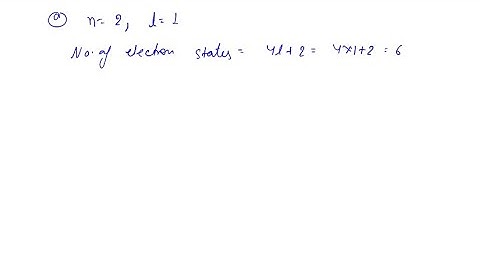 a n = 2, l = 1
No. of electron states = 4l + 2 = 4×1+2 = 6